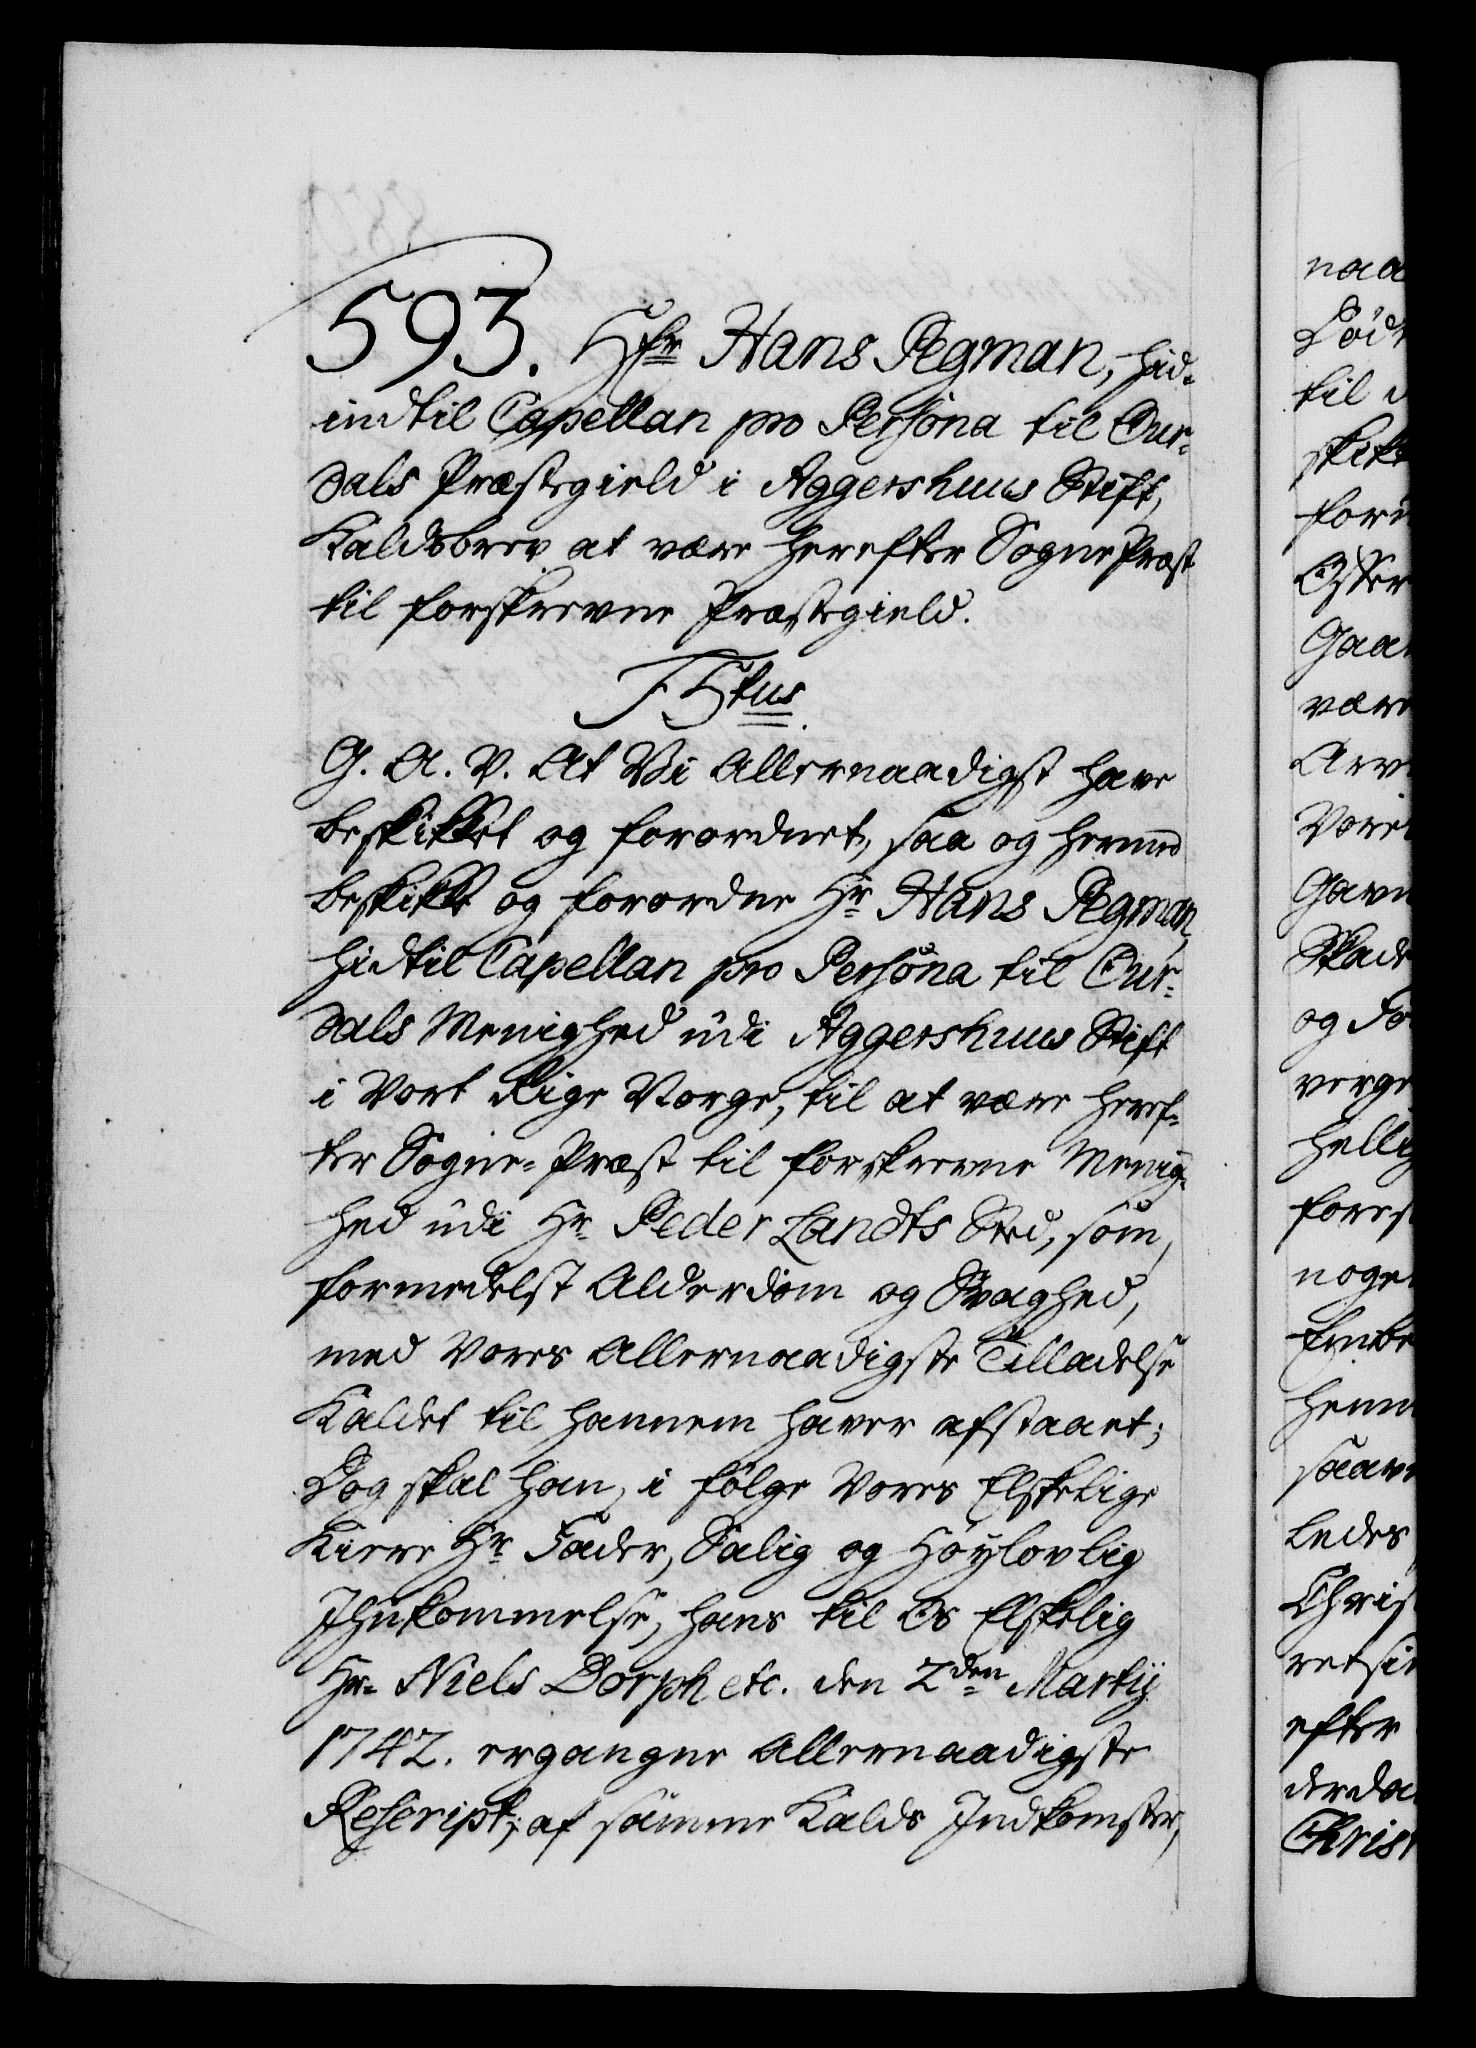 593. Hr Hans Pegman, hid-
indtil Capellan pro Persona til Our-
dals Præstegield i Aggershuus Stift,
Kaldsbrev at være herefter Sogne Præst
til forskrevne Præstegield.
F 5tus
G. A. V. At Vi Allernaadigst have
beskikket og forordnet, saa og hermed
beskikke og forordne Hr Hans Pegman,
hidtil Capellan pro Persona til Our-
dals Menighed udi Aggershuus Stift
i Vort Rige Norge, til at være heref-
ter Sogne-Præst til forskrevne Menig-
hed udi Hr Peder Landts Sted, som,
formedelst Alderdom og Svaghed,
med Vores Allernaadigste Tilladelse
Kaldet til hannem haver afstaaet;
Dog skal han, i følge Vores Elskelige
Kiere Hr Fader, Salig og Høylovlig
Ihukommelse, hans til Os Elskelig
Hr. Niels Dorph etc. den 2den Martij
1742. ergangne Allernaadigste
Rescript, af samme Kalds Indkomster,
naa
til
og